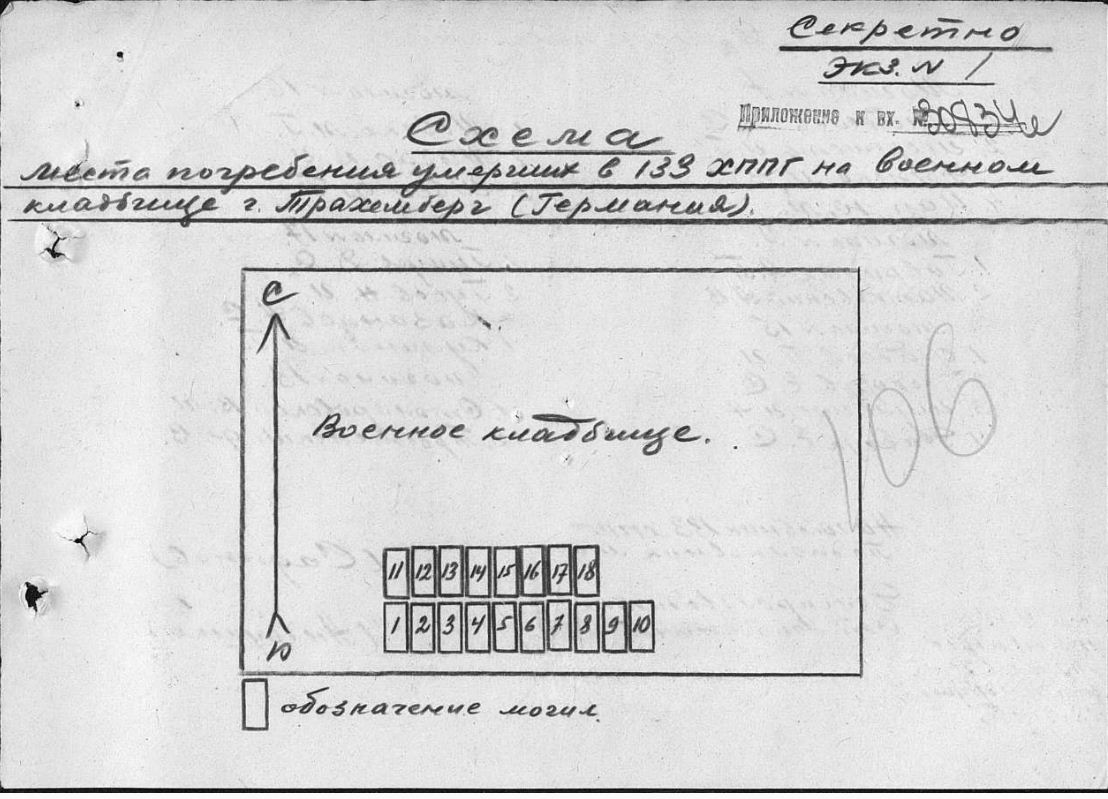 Секретно
Экз. N 1
Приложение к вх. №30834с
Схема
места погребения умерших в 139 ХППГ на военном
кладбище г. Трахемберг (Германия).
С
Военное кладбище.
11 12 13 14 15 16 17 18
1 2 3 4 5 6 7 8 9 10
Ю
106
обозначение могил